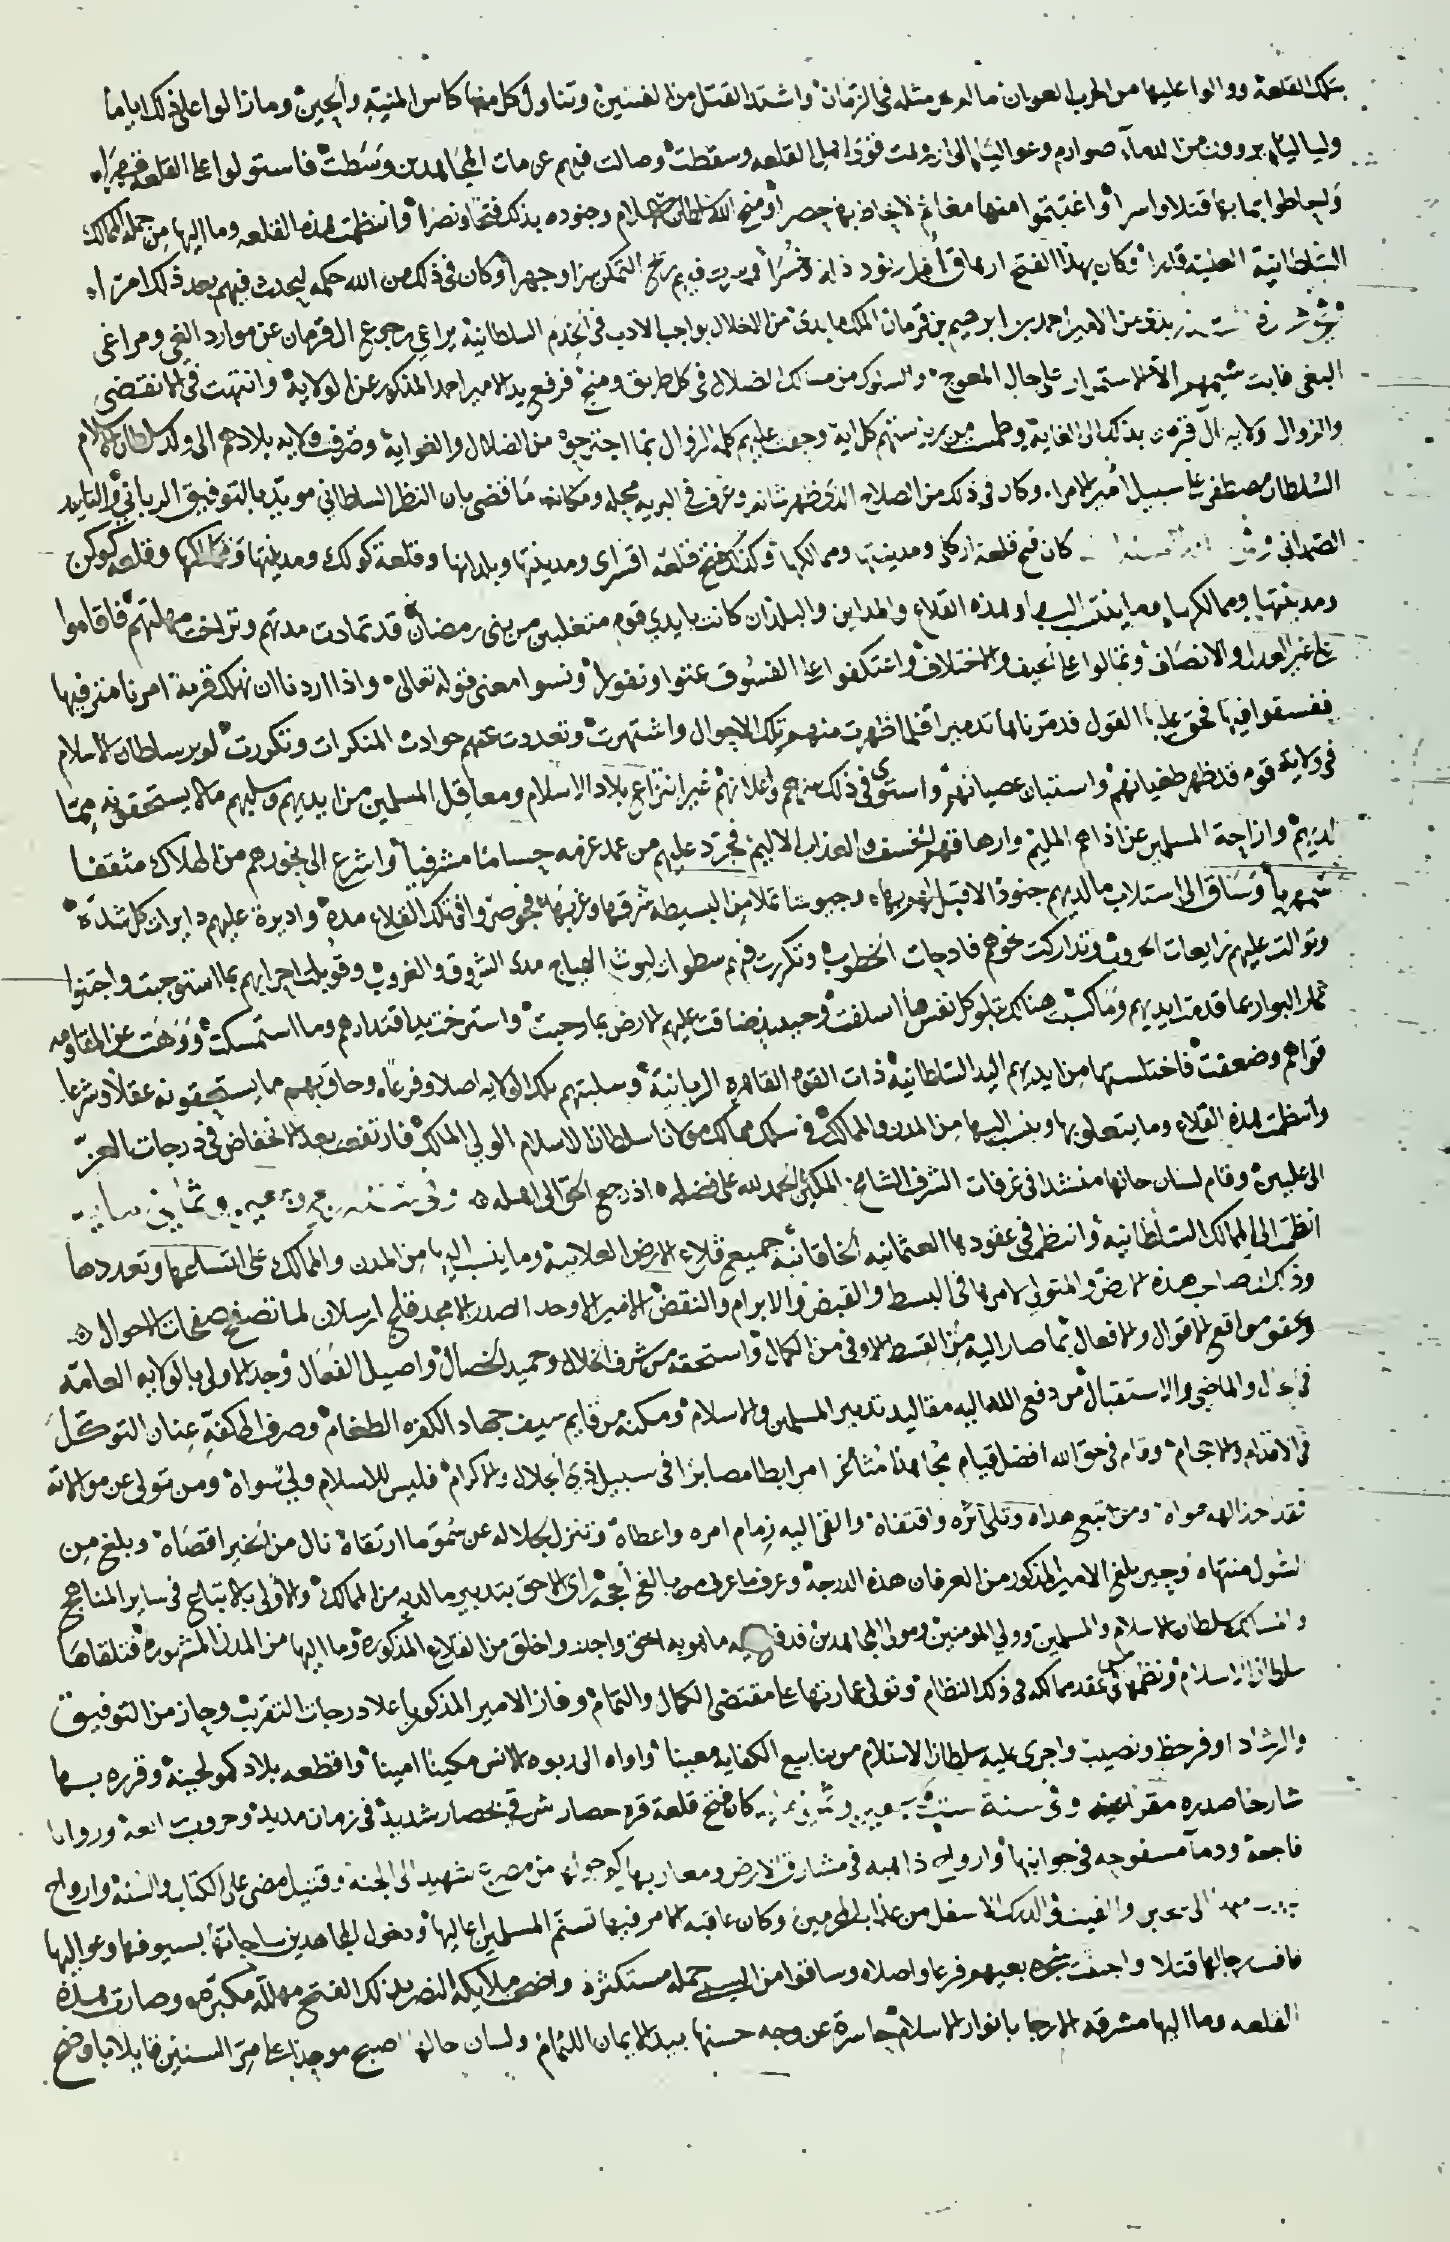 بتلك القلعة ووالوا عليها من الحرب العوان ما لم ير مثله في الزمان واشتد القتل من الفئتين وتناول كل منها كاس المنية والحين وما زالوا على ذلك اياما
ولياليا يروون من الدماء صوارم وعواليا الى ان زلت قوى اهل القلعه وسقطت وصالت فيهم عزمات المجاهدين وسطت فاستولوا على القلعة قهرا
واحاطوا بما بها قتلا واسرا واغتنموا منها مغانم لا يحاط بها حصرا ومنح الله سلطان الاسلام وجنوده بذلك فتحا ونصرا وانتظمت هذه القلعه وما اليها من جملة الممالك
السلطانية العلية وكان بهذا الفتح في ذلك من الله حكمه ليحدث فيهم بعد ذلك امرا
من الامير احمد بن ابرهيم بن قرمان الملك ما بدى من الاخلال بواجب الادب في الخدم السلطانية يراعي رجوع ال قرمان عن موارد الغي ومراعى
البغي فابت شيمهم الا الاستمرار على حال المعوج والسلوك من مسالك الضلال في كل طريق ومنهج فرفع يد الامير احمد المذكور عن الولاية وانتهت في الانقضى
والزوال ولاية آل قرمان بذلك الى الغاية وحقت عليهم كلمة الزوال بما اجترحوه من الضلال والغواية وصرفت ولاية بلادهم الى ولد سلطان الاسلام
السلطان مصطفى على سبيل امير الامراء وكان في ذلك من الصلاح الذي ظهر شانه وعرف في البريه محله ومكانه ما قضى بان النظر السلطاني مويد بالتوفيق الرباني والتاييد
الصمداني وفي كان فتح قلعة اركلى ومدينتها وممالكها وكذلك فتح قلعة اقسراى ومدينتها وبلدانها وقلعة كولك ومدينتها وممالكها وقلعه كوكن
ومدينتها وممالكها وما ينتسب اليها وهذه القلاع والمداين والبلدان كانت بايدي قوم متغلبين من بنى رمضان قد تمادت مدتهم وتراخت مهلتهم فاقاموا
على غير العدل والانصاف وتمالوا على الحيف والاختلاف واعتكفوا على الفسوق عتوا ونفورا ونسوا معنى قوله تعالى واذا اردنا ان نهلك قرية امرنا مترفيها
ففسقوا فيها فحق عليها القول فدمرناها تدميرا فلما ظهرت منهم تلك الاحوال واشتهرت وتعددت عنهم حوادث المنكرات وتكررت لم ير سلطان الاسلام
في ولاية قوم قد ظهر طغيانهم واستبان عصيانهم واستوى في ذلك سرهم واعلانهم غير انتزاع بلاد الاسلام ومعاقل المسلمين من ايديهم وسلبهم ما لا يستحقونه مما
لديهم وازاحة المسلمين عن اذاهم المليم وارهاقهم الخسف والعذاب الاليم فجرد عليهم من غمد عزمه حساما مشرفيا واشرع الى نحورهم من الهلاك مثقفا
سمهريا وساق الى استلاب ما لديهم جنود الاقبل لهم بها وجيوشا تملا من البسيطه شرقها وغربها فحوصر وافى تلك القلاع مدة واديرة عليهم دايرات كل شدة
وتوالت عليهم نزايعات الحروب وتداركت نحوهم فادحات الخطوب وتكررت فيهم سطوات ليوث الهياج مدى الشروق والغروب وقوبلت اجرامهم بما استوجبت واجتنوا
ثمار البوار بما قدمت ايديهم وما كسبت هنالك تبلو كل نفس ما اسلفت وحينيذ ضاقت عليهم الارض بما رحبت واسترخت يد اقتدارهم وما استمسكت ووهت عن المقاومه
قواهم وضعفت فاختلستها من ايديهم اليد السلطانية ذات القوه القاهره الربانية وسلبتهم تلك الولايه اصلا وفرعا وحاق بهم ما يستحقونه عقلا وشرعا
وانتظمت هذه القلاع وما يتعلق بها وينسب اليها من المدن والممالك في سلك ممالك مولانا سلطان الاسلام الولي المالك فارتفعت بعد الانخفاض في درجات العز
الى عليين وقام لسان حالها منشدا في غرفات الشرف الشامخ المكين الحمد لله على فضله اذ رجع الحق الى اهله وفي سنة وثماني ماية
انظمت الى الممالك السلطانية وانتظم في عقودها العثمانية الخاقانية جميع قلاع الارض العلائية وما ينسب اليها من المدن والممالك على اتساعها وتعددها
وذلك ان صاحب هذه الارض والمتولي لامرها في البسط والقبض والابرام والنقض الامير الاوحد الصدر الامجد قلج ارسلان لما تصفح صفحات الاحوال
وتحقق مواقع الاقوال والافعال بما صار اليه من القسط الاوفى من الكمال واستحقه من شرف الخلال وحميد الخصال واصيل الفعال وجد الاولى بالولايه العامة
في الحال والماضي والاستقبال من دفع الله اليه مقاليد تدبير المسلمين والاسلام ومكنه من قايم سيف جهاد الكفره الطغام وصرف الى كفه عنان التوكل
في الاقدام والاحجام وقام في حق الله افضل قيام مجاهدا مثاغرا مرابطا مصابرا في سبيل ذي الجلال والاكرام فليس للاسلام ولي سواه ومن تولى عن موالاته
فقد اتخذ الهه هواه ومن اتبع هداه وتلى اثره واقتفاه والقى اليه زمام امره واعطاه وتنزل لجلاله عن سمو ما ارتقاه نال من الخير اقصاه وبلغ من
السول منتهاه وحين بلغ الامير المذكور من العرفان هذه الدرجة وعرف ما عرف من بالغ الحجه راى الاحق بتدبير ما لديه من الممالك والاولى بالاتباع في ساير المناهج
والمسالك سلطان الاسلام والمسلمين وولي المومنين ومولى المجاهدين فدفع اليه ما هو به احق واجدر واخلق من القلاع المذكورة وما اليها من المدن المشهورة فتلقاها
سلطان الاسلام ونظمها في عقد ممالكه في ذلك النظام وتولى عمارتها على مقتضى الكمال والتمام وفاز الامير المذكور باعلا درجات التقريب وحاز من التوفيق
والرشاد اوفر حظ ونصيب واجرى عليه سلطان الاسلام من ينابيع الكفايه معينا واواه الى ربوه الانس مكينا امينا واقطعه بلاد كمولجينة وقرره بها
شارحا صدره مقرا عينه وفي سنة كان فتح قلعة قره حصار شرقي بحصار شديد في زمان مديد وحروب
فاجعة ودما مسفوحه في جوانبها وارواح ذاهبه في مشارق الارض ومغاربها من صريع شهيد الى الجنه وقتيل مضى على الكتاب والسنة وارواح
الى في الدرك الاسفل من عذاب المجرمين وكان عاقبه الامر فيها تسنم المسلمين اعاليها ودخول المجاهدين ساحاتها بسيوفها وعواليها
فافنت رجالها قتلا واجتثت شجره بغيهم فرعا واصلا وساقوا من السبي جمله مستكثره واضحى ملايكه النصر بذلك الفتح مهللة مكبره وصارت هذه
القلعه وما اليها مشرقه الارجا بانوار الاسلام حاسرة عن وجه حسنها بيد الايمان اللثام ولسان حالها اصبح موجدا على مر السنين قايلا باوضح